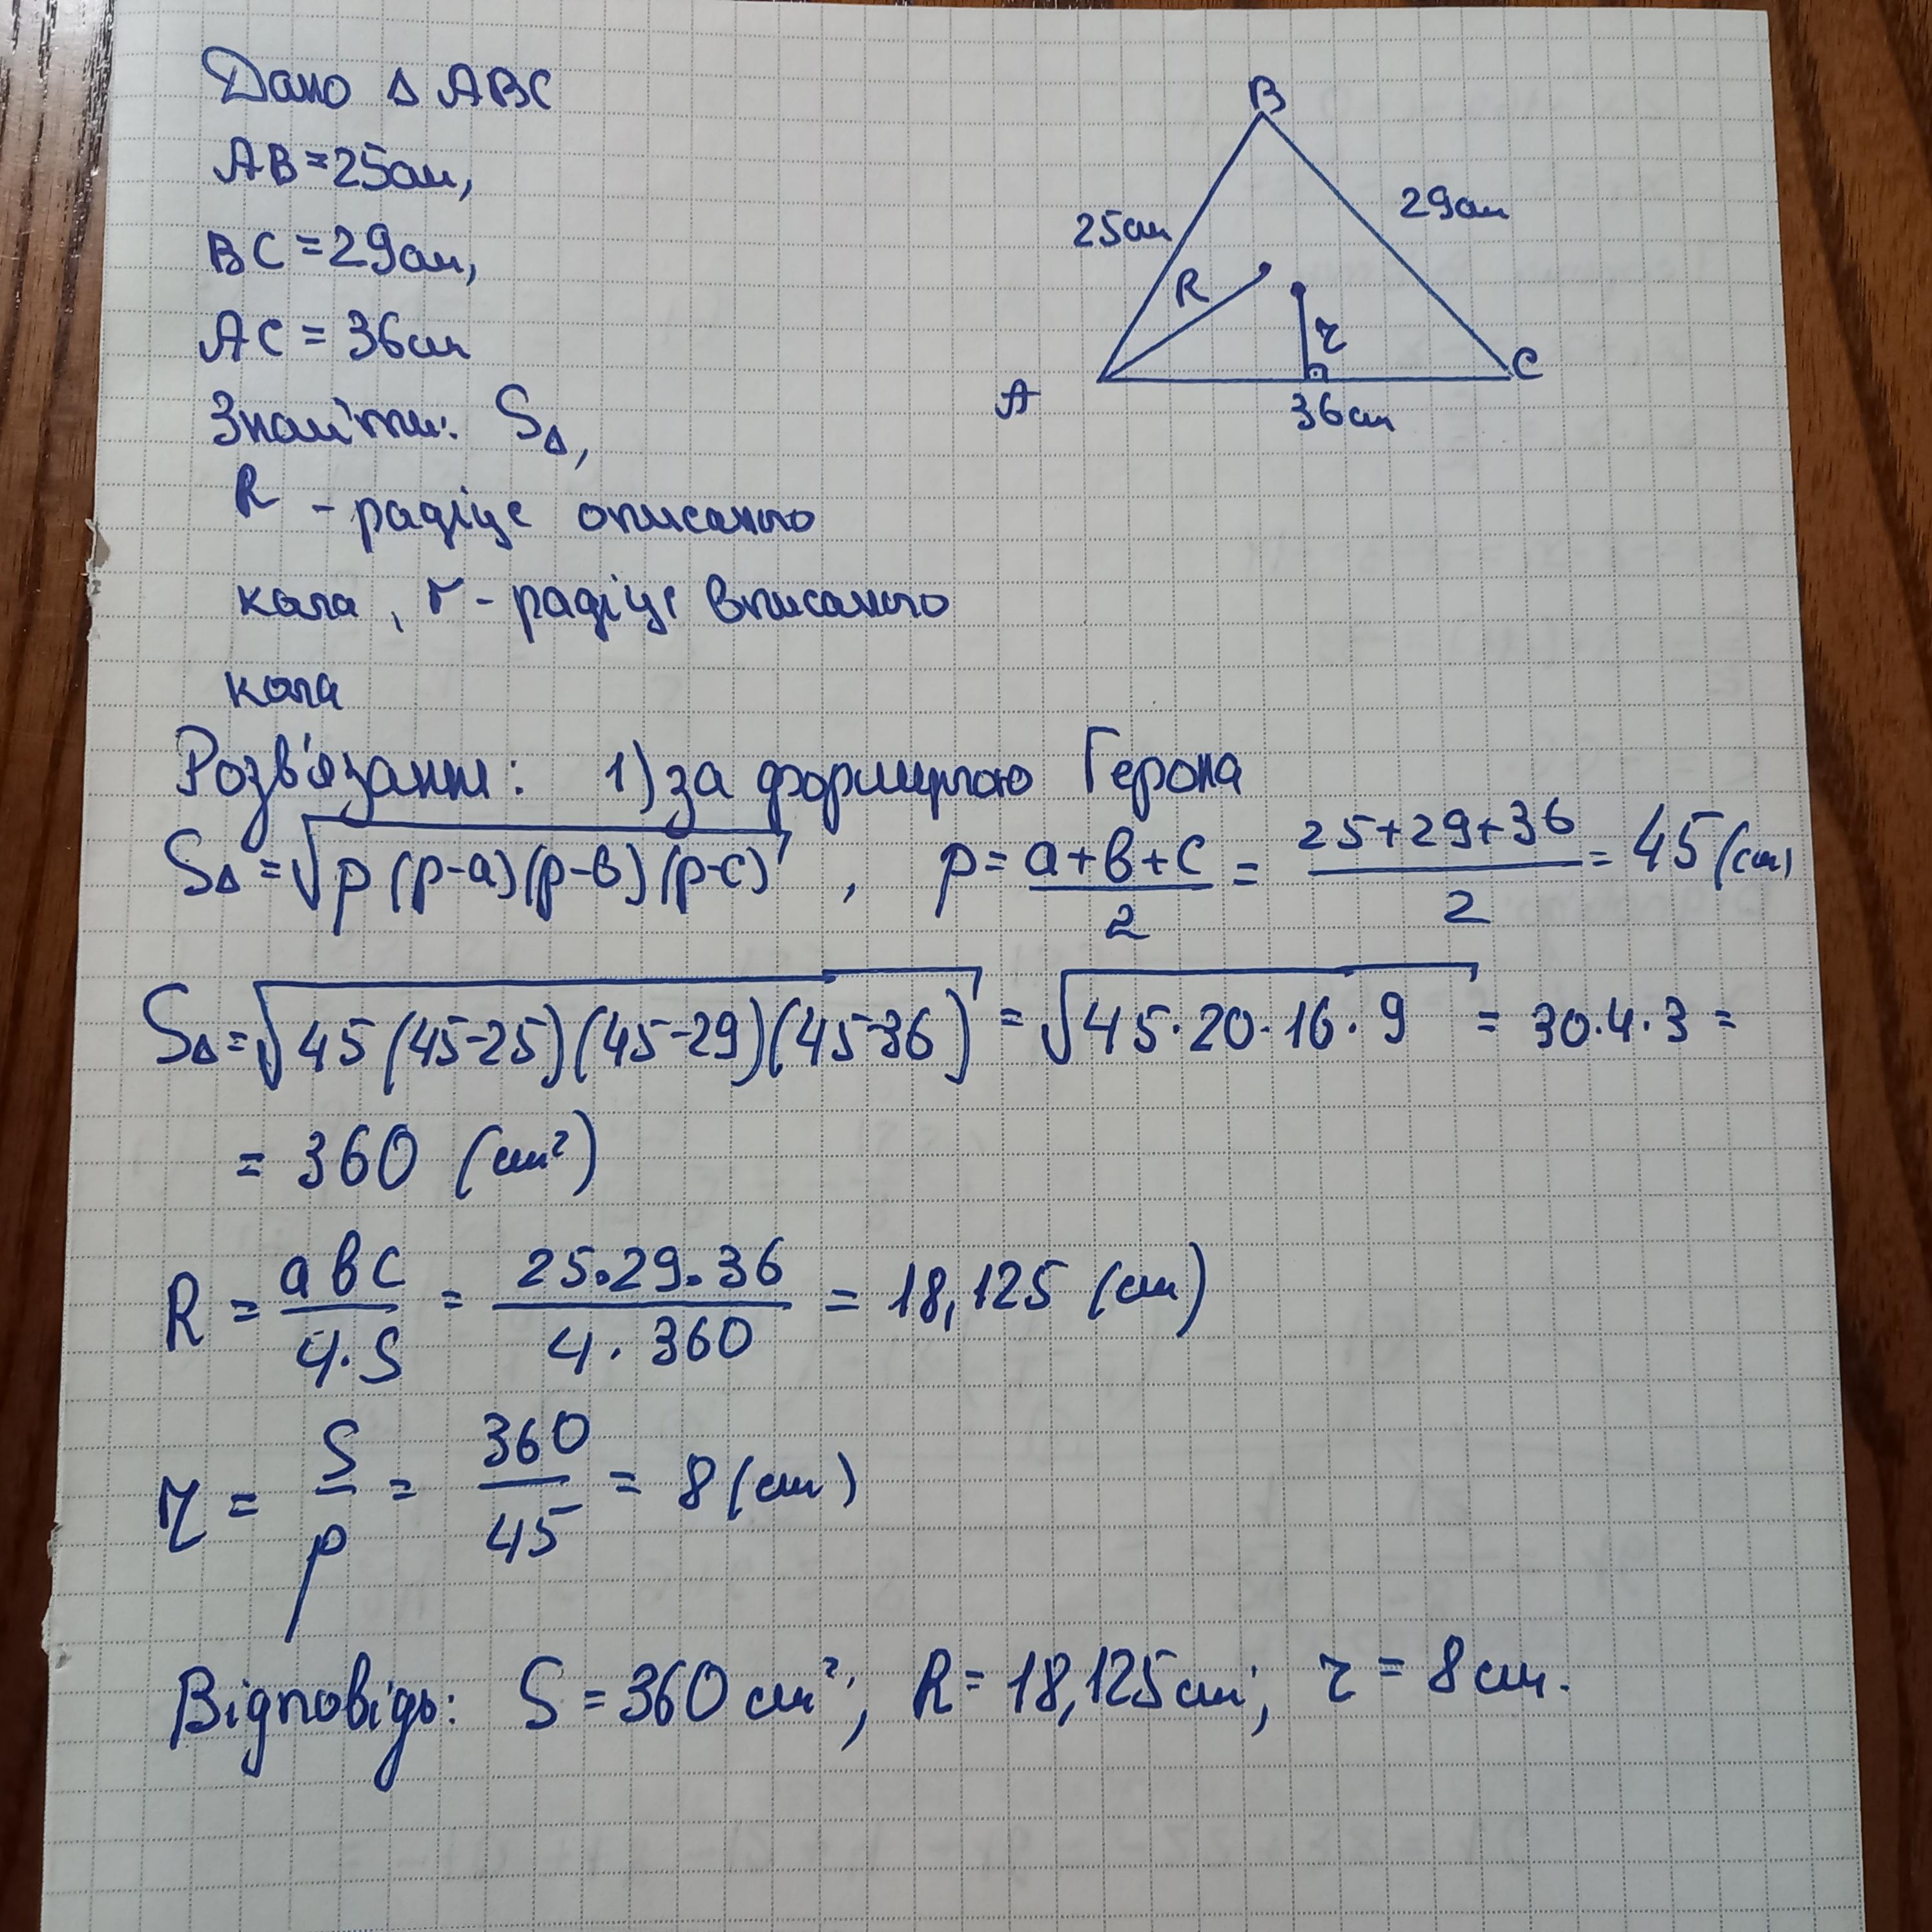 Дано Δ ABC
AB = 25см,
BC = 29см,
AC = 36см
Знайти: SΔ,
R - радіус описаного
кола, r - радіус вписаного
кола
B
25см
29см
R
r
A
C
36см
Розв'язання: 1) за формулою Герона
SΔ = √p(p-a)(p-b)(p-c), p = (a+b+c)/2 = (25+29+36)/2 = 45 (см)
SΔ = √45(45-25)(45-29)(45-36) = √45·20·16·9 = 30·4·3 =
= 360 (см²)
R = abc/(4·S) = (25·29·36)/(4·360) = 18,125 (см)
r = S/p = 360/45 = 8 (см)
Відповідь: S = 360 см²; R = 18,125 см; r = 8 см.